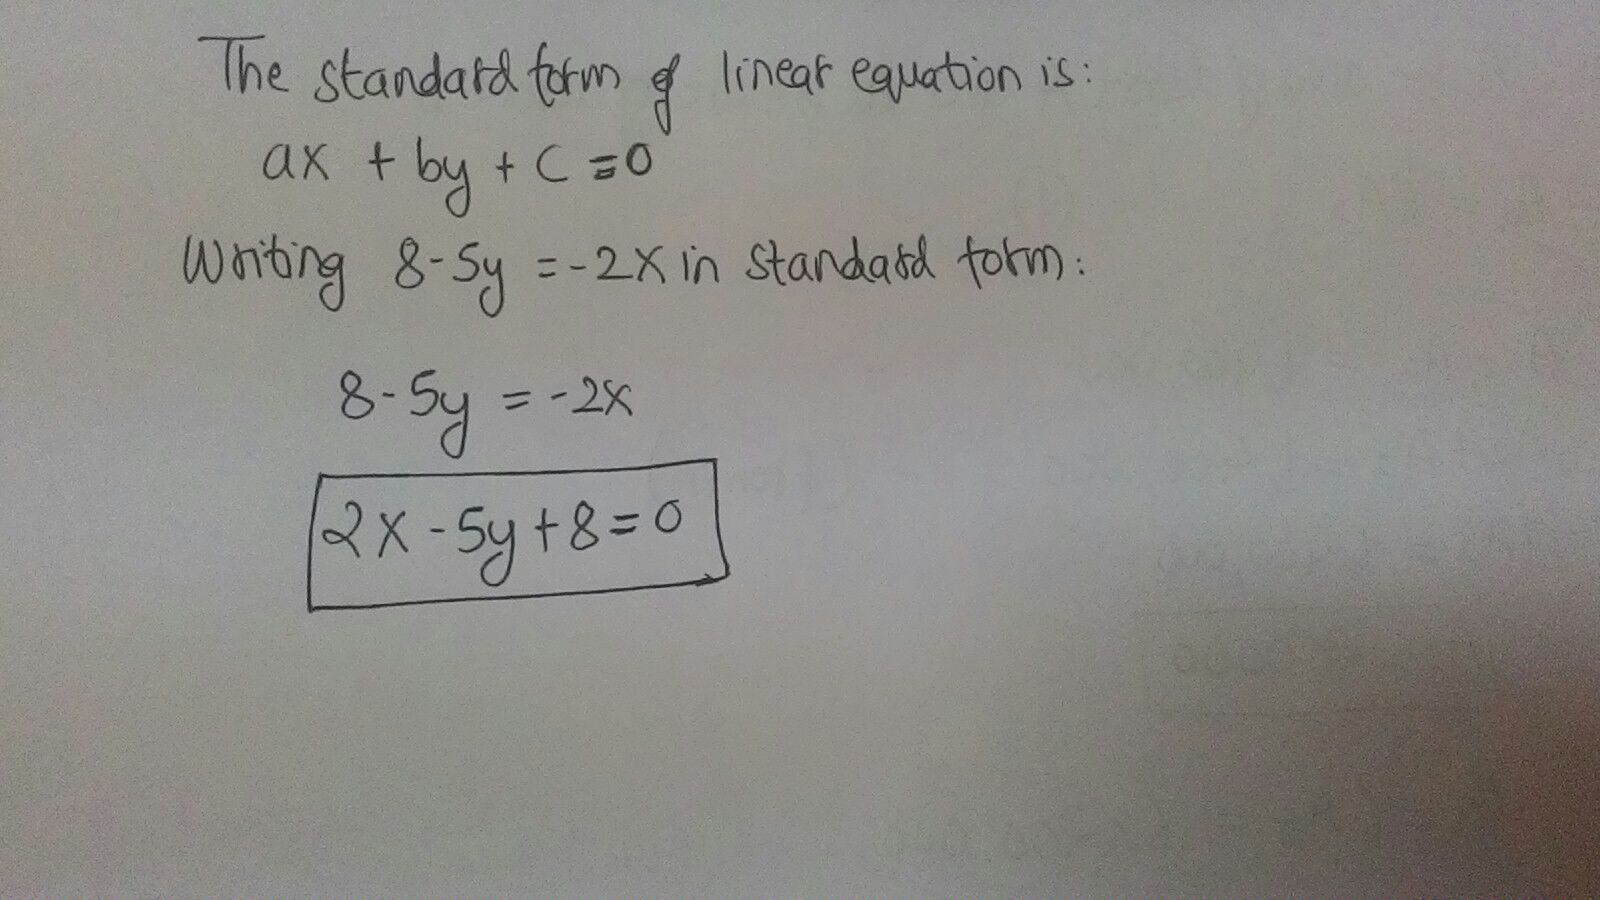 The standard form of linear equation is:
ax + by + c = 0
Writing 8-5y = -2x in standard form:
8-5y = -2x
2x - 5y + 8 = 0